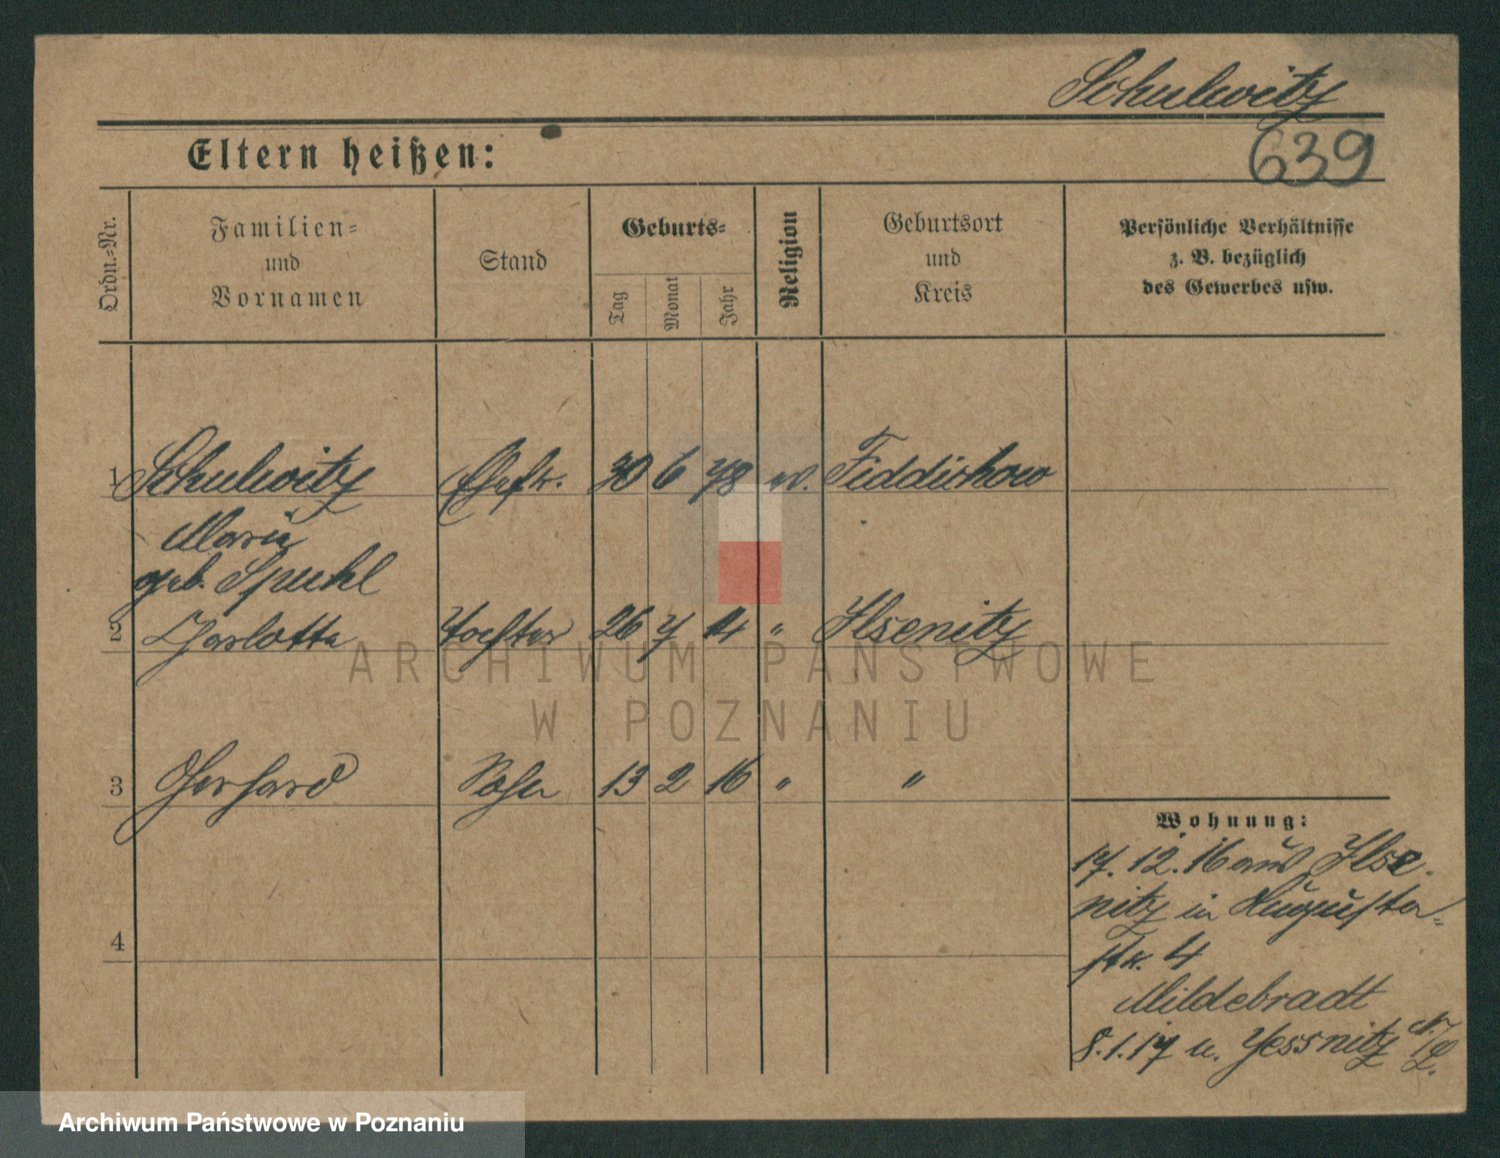 Schulwitz
Eltern heißen:
639
Ordn.-Nr.
Familien=
und
Vornamen
Stand
Geburts=
Tag
Monat
Jahr
Religion
Geburtsort
und
Kreis
Persönliche Verhältnisse
z. B. bezüglich
des Gewerbes usw.
1 Schulwitz Ehefr. 30 6 78 ev. Fiddichow
Marie
geb.
2 Charlotte Tochter 26 7 14 " Ilsenitz
3 Gerhard Sohn 13 2 16 " "
4
Wohnung:
17.12.16 aus Ilse-
nitz in Augusta=
str. 4
Mildebradt
8.1.17 n. Jessnitz N/L.
ARCHIWUM PAŃSTWOWE
W POZNANIU
Archiwum Państwowe w Poznaniu